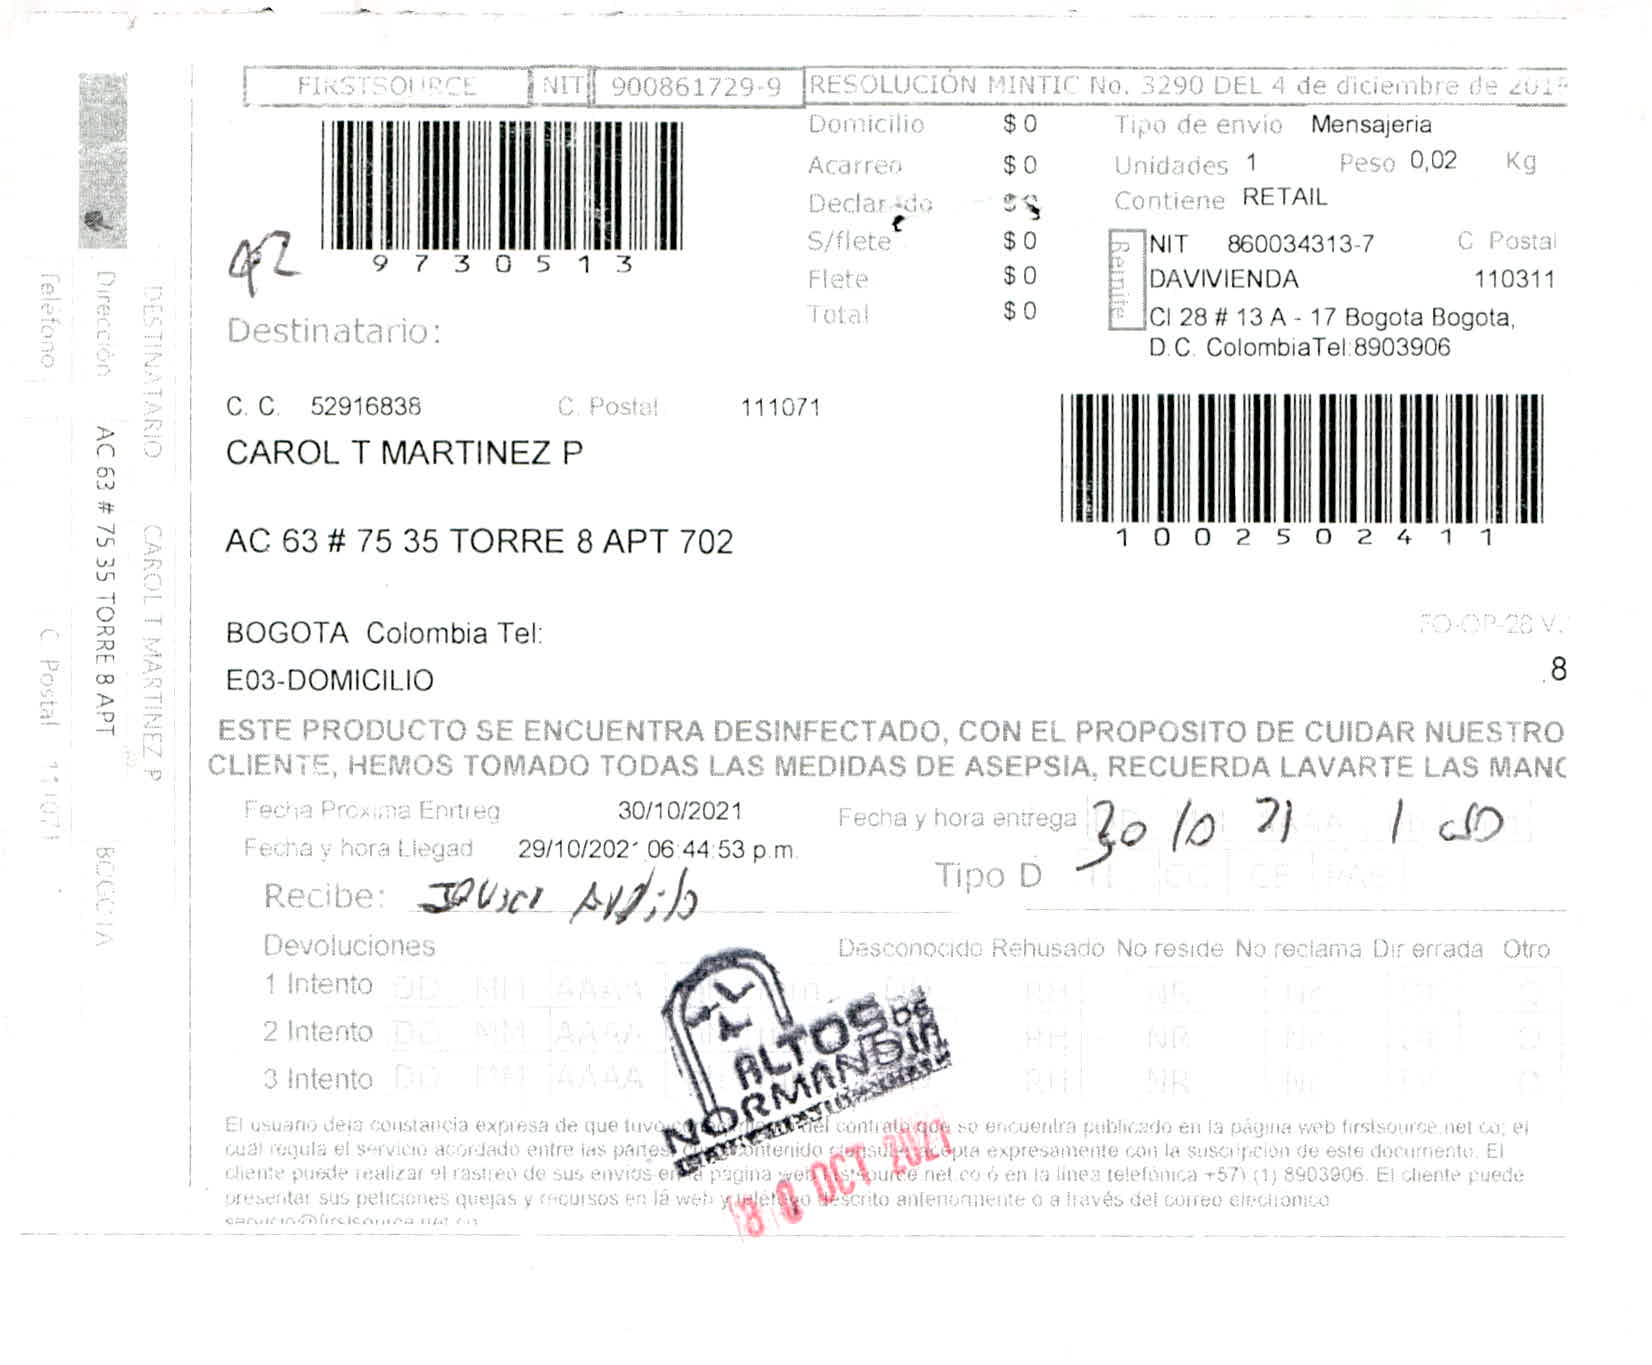 FIRSTSOURCE NIT 900861729-9 RESOLUCIÓN MINTIC No. 3290 DEL 4 de diciembre de
9730513
Destinatario:
Domicilio $ 0
Acarreo $ 0
Declarado
S/flete $ 0
Flete $ 0
Total $ 0
Tipo de envio Mensajeria
Unidades 1 Peso 0,02 Kg
Contiene RETAIL
Remite
NIT 860034313-7 C Postal
DAVIVIENDA 110311
Cl 28 # 13 A - 17 Bogota Bogota,
D.C. ColombiaTel:8903906
C. C. 52916838 C. Postal 111071
CAROL T MARTINEZ P
AC 63 # 75 35 TORRE 8 APT 702
1002502411
BOGOTA Colombia Tel:
E03-DOMICILIO
FO-OP-28 V.
.8
ESTE PRODUCTO SE ENCUENTRA DESINFECTADO, CON EL PROPOSITO DE CUIDAR NUESTRO
CLIENTE, HEMOS TOMADO TODAS LAS MEDIDAS DE ASEPSIA, RECUERDA LAVARTE LAS MANO
Fecha Proxima Enrtreg 30/10/2021
Fecha y hora Llegad 29/10/2021 06:44:53 p.m.
Fecha y hora entrega 30 10 21
Tipo D TI CC CE PAS
Recibe:
Devoluciones Desconocido Rehusado No reside No reclama Dir errada Otro
1 Intento DD MM AAAA RH NR
2 Intento DD MM AAAA RH NR
3 Intento DD MM AAAA RH NR
ALTOS DE
NORMANDIA
30 OCT 2021
El usuario deja constancia expresa de que tuvo del contrato que se encuentra publicado en la página web firstsource.net.co; el
cual regula el servicio acordado entre las partes contenido acepta expresamente con la suscripcion de este documento. El
cliente puede realizar el rastreo de sus envios en la pagina web firstsource.net.co ó en la linea telefónica +57) (1) 8903906. El cliente puede
presentar sus peticiones quejas y recursos en la web y descrito anteriormente o a través del correo electronico
servicio@firstsource.net.co
DESTINATARIO CAROL T MARTINEZ P
Dirección AC 63 # 75 35 TORRE 8 APT BOGOTA
Teléfono C Postal 111071